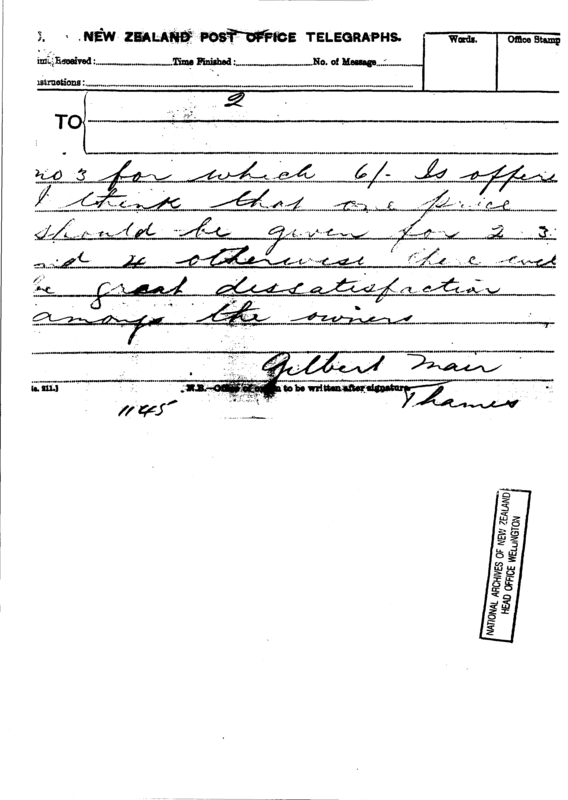 NEW ZEALAND POST OFFICE TELEGRAPHS.
Words.
Office Stamp
Received:
Time Finished:
No. of Message
structions:
2
TO
no 3 for which 6/- Is offere
I think that one price
should be given for 2 3
nd 4 otherwise there will
be great dissatisfaction
amongs the owners
Gilbert Mair
N.B.—Office of origin to be written after signature.
Thames
1145
NATIONAL ARCHIVES OF NEW ZEALAND
HEAD OFFICE WELLINGTON